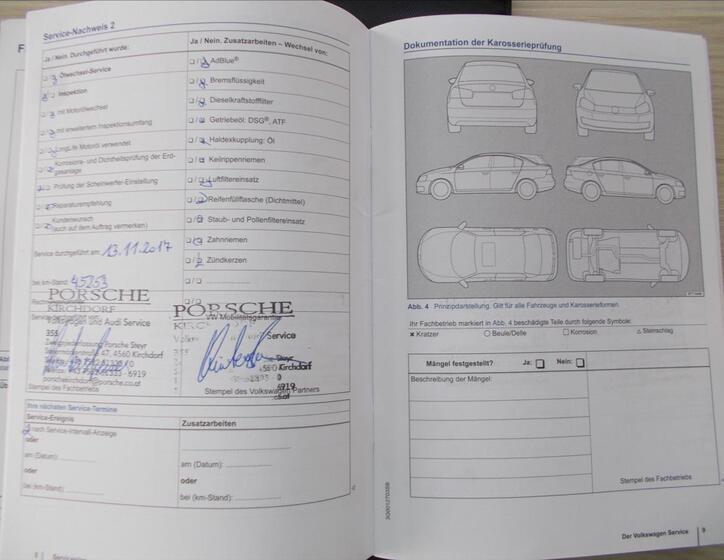 Service-Nachweis 2
Ja / Nein. Durchgeführt wurde:
Ölwechsel-Service
Inspektion
mit Motorölwechsel
mit erweitertem Inspektionsumfang
LongLife Motoröl verwendet
Korrosions- und Dichtheitsprüfung der Erd-
gasanlage
Prüfung der Scheinwerfer-Einstellung
Reparaturempfehlung
Kundenwunsch
(auch auf dem Auftrag vermerken)
Service durchgeführt am: 13.11.2017
bei km-Stand: 45253
Ja / Nein. Zusatzarbeiten – Wechsel von:
AdBlue®
Bremsflüssigkeit
Dieselkraftstofffilter
Getriebeöl: DSG®, ATF
Haldexkupplung: Öl
Keilrippenriemen
Luftfiltereinsatz
Reifenfüllflasche (Dichtmittel)
Staub- und Pollenfiltereinsatz
Zahnriemen
Zündkerzen
PORSCHE
KIRCHDORF
Volkswagen und Audi Service
355
Zweigniederlassung Porsche Steyr
47, 4560 Kirchdorf
6919
porschekirchdorf@porsche.co.at
Stempel des Fachbetriebs
PORSCHE
VW Mobilitätsgarantie
Service
Steyr
Kirchdorf
6919
Stempel des Volkswagen Partners
Ihre nächsten Service-Termine
Service-Ereignis
nach Service-Intervall-Anzeige
oder
am (Datum):
oder
bei (km-Stand):
Zusatzarbeiten
am (Datum):
oder
bei (km-Stand):
4
8
Dokumentation der Karosserieprüfung
Abb. 4 Prinzipdarstellung. Gilt für alle Fahrzeuge und Karosserieformen.
Ihr Fachbetrieb markiert in Abb. 4 beschädigte Teile durch folgende Symbole:
× Kratzer ○ Beule/Delle □ Korrosion △ Steinschlag
Mängel festgestellt? Ja: □ Nein: □
Beschreibung der Mängel:
Stempel des Fachbetriebs
Der Volkswagen Service 9